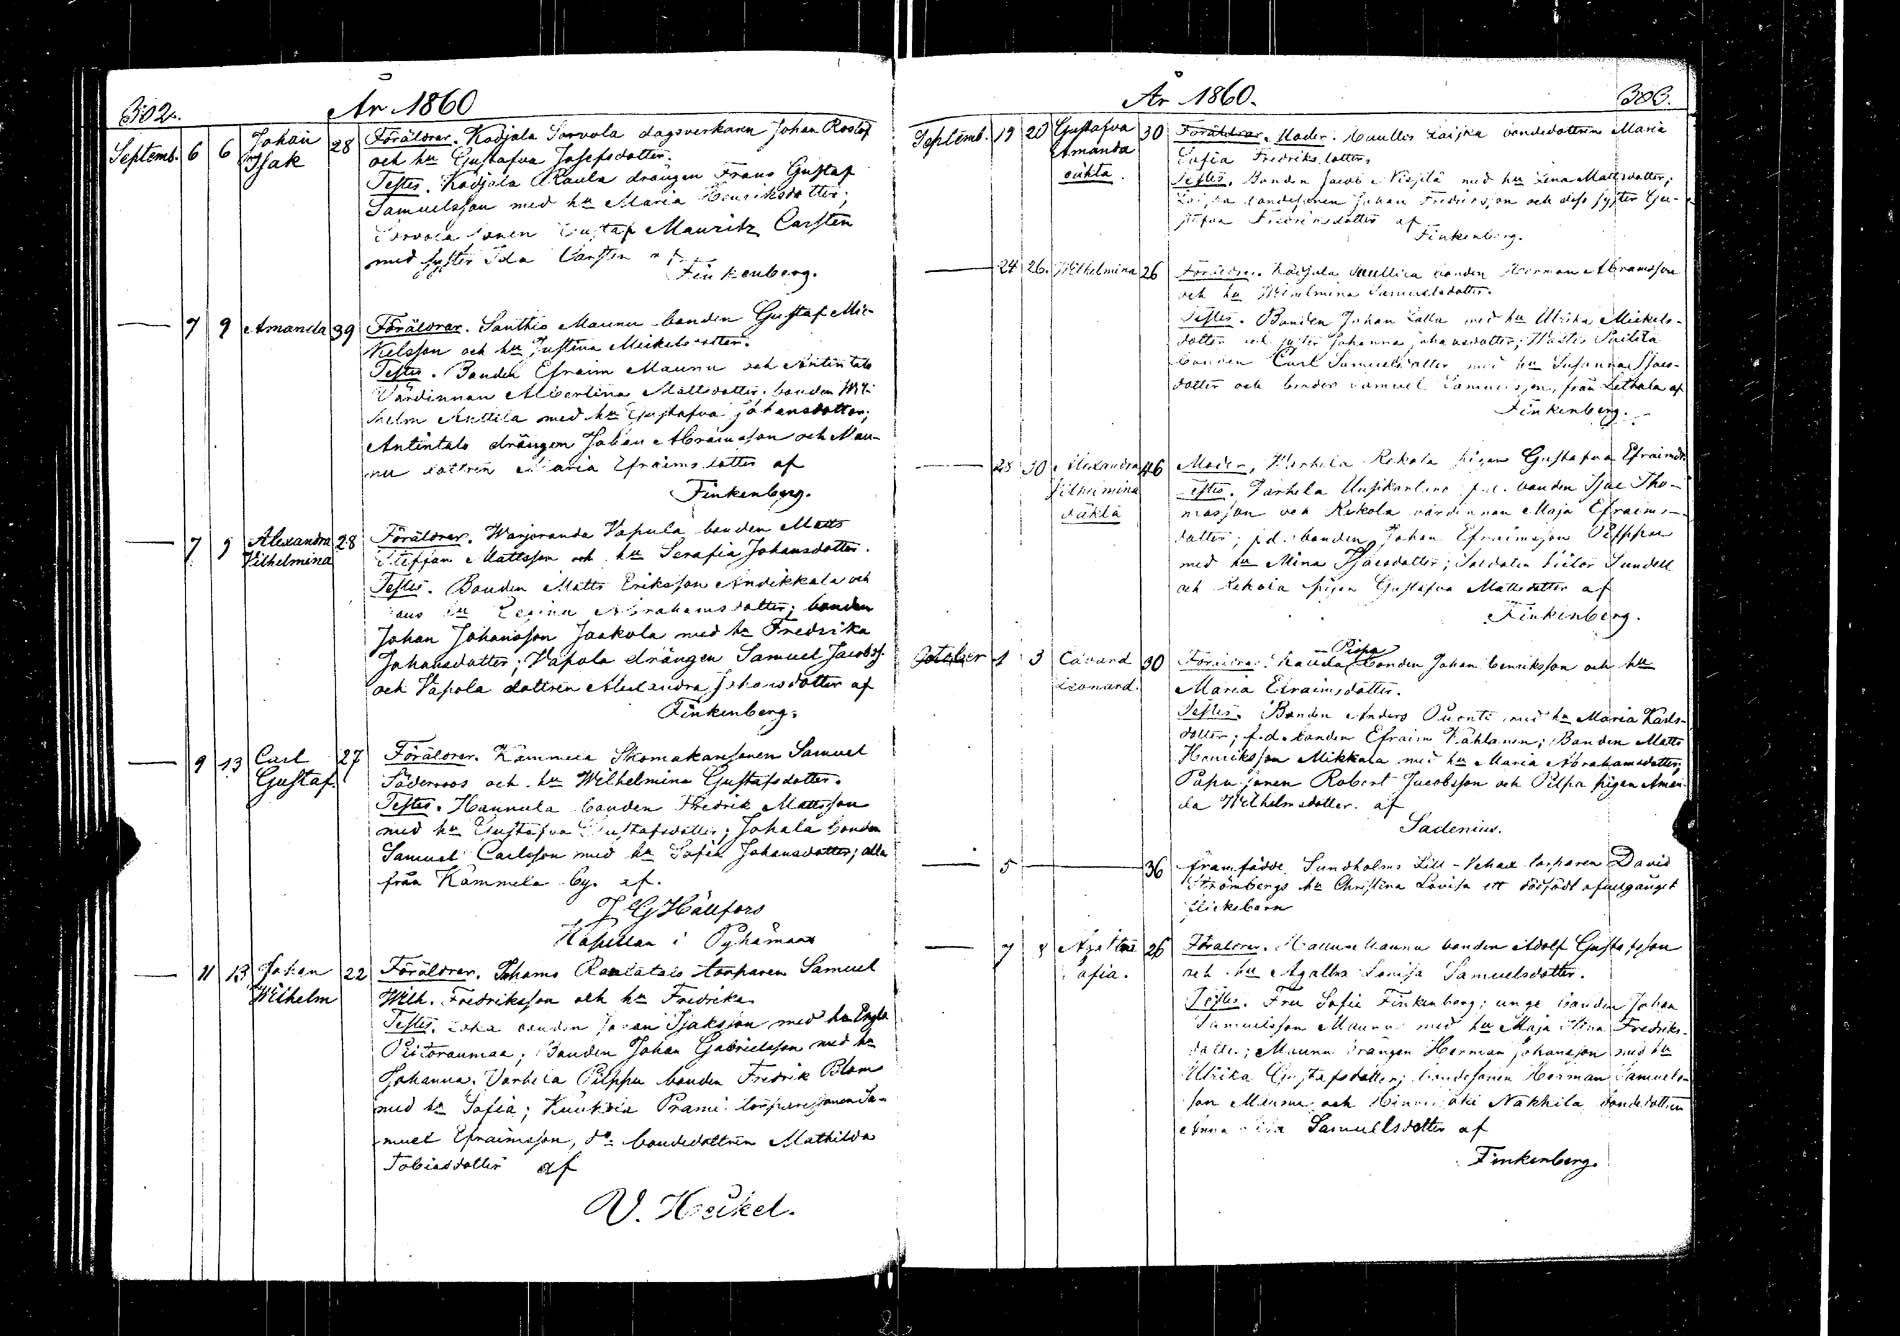 302.
År 1860
Septemb. 6 6 Johan Isak 28 Föräldrar. Kodjala Sorvola dagsverkaren Johan Roslöf
och hu Gustafva Josefsdotter.
Testes. Kodjala Raula drängen Frans Gustaf
Samuelsson med hu Maria Henriksdotter,
Sorvola sonen Gustaf Mauritz Carsten
med syster Ida Carsten af
Finkenberg.
— 7 9 Amanda 39 Föräldrar. Santtio Maunu bonden Gustaf Mic-
kelsson och hu Justina Mickelsdotter.
Testes. Bonden Efraim Maunu och Antintalo
Värdinnan Albertina Mattsdotter, bonden Wil-
helm Anttila med hu Gustafva Johansdotter;
Antintalo drängen Johan Abramsson och Mau-
nu dottren Maria Efraimsdotter af
Finkenberg.
— 7 9 Alexandra Vilhelmina 28 Föräldrar. Warjoranda Vapula bonden Matts
Steffan Mattsson och hu Serafia Johansdotter.
Testes. Bonden Matts Eriksson Andikkala och
hans hu Regina Abrahamsdotter; bonden
Johan Johansson Jaakola med hu Fredrika
Johansdotter; Vapola drängen Samuel Jacobss.
och Vapola dottren Alexandra Johansdotter af
Finkenberg.
— 9 13 Carl Gustaf 27 Föräldrar. Kammela Skomakarsonen Samuel
Söderroos och hu Wilhelmina Gustafsdotter.
Testes. Hannula bonden Fredrik Mattsson
med hu Gustafva Gustafsdotter; Johala bonden
Samuel Carlsson med hu Sofia Johansdotter; alla
från Kammela by. af.
J G Hällfors
Kapellan i Pyhämaa
— 11 13 Johan Wilhelm 22 Föräldrar. Ihamo Rantatalo torparen Samuel
Wilh. Fredriksson och hu Fredrika
Testes. bonden Johan Isaksson med hu
Bonden Johan Gabrielsson med hu
Johanna. Varhela Pilppu bonden Fredrik Blom
med hu Sofia; Prami torparesonen Sa-
muel Efraimsson, do bondedottren Mathilda
Tobiasdotter af
V. Heikel.
År 1860.
303.
Septemb. 19 20 Gustafva Amanda oäkta. 30 Föräldrar. Moder. Laiska bondedottren Maria
Sofia Fredriksdotter.
Testes. Bonden Jacob med hu Lena Mattsdotter;
bondesonen Johan Fredriksson och dess syster Gu-
stafva Fredriksdotter af
Finkenberg.
— 24 26. Wilhelmina 26 Föräldrar. Kodjala bonden Herman Abramsson
och hu Wilhelmina Samuelsdotter.
Testes. Bonden Johan Lalla med hu Ulrika Mickels-
dotter och Johanna Johansdotter;
bonden Carl Samuelsdotter med hu Susanna Isacs-
dotter och Samuel Samuelsson, från Lethala af
Finkenberg.
— 28 30 Alexandra Vilhelmina oäkta 46 Moder. Varhela Rekola pigan Gustafva Efraimsd.
Testes. Varhela f.d. bonden Isac Tho-
masson och Rekola värdinnan Maja Efraims-
dotter; f.d. bonden Johan Efraimsson Pilppu
med hu Mina Isacsdotter; Soldaten Victor Sundell
och Rekola pigan Gustafva Mattsdotter af
Finkenberg.
October 1 3 Edvard Leonard. 30 Föräldrar. Kauda Piipa bonden Johan Henriksson och hu
Maria Efraimsdotter.
Testes. Bonden Anders Puonti med hu Maria Karls-
dotter; f.d. bonden Efraim Vahlanen; Bonden Matts
Henriksson Mikkala med hu Maria Abrahamsdotter,
sonen Robert Jacobsson och pigan Aman-
da Wilhelmsdotter. af
Sadenius.
— 5 — 36 framfödde Sundholms Lill-Vehas torparen David
Strömbergs hu Christina Lovisa ett dödfödt ofullgånget
flickebarn
— 7 8 Agatha Sofia. 26 Föräldrar. Maunu bonden Adolf Gustafsson
och hu Agatha Lovisa Samuelsdotter.
Testes. Fru Sofie Finkenberg; unge bonden Johan
Samuelsson Maunu med hu Maja Stina Fredriks-
dotter; Maunu drängen Herman Johansson med hu
Ulrika Gustafsdotter; bondesonen Herman Samuels-
son Maunu och Nakkila bondedottren
Anna Samuelsdotter af
Finkenberg.